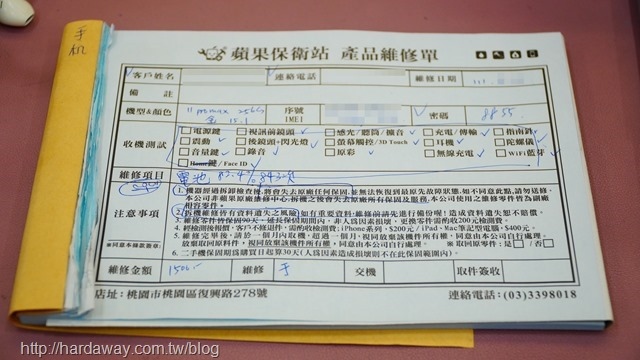 手机
蘋果保衛站 產品維修單
客戶姓名 連絡電話 維修日期 111.
備註
機型&顏色 11 pro max 256G 金 15.1 序號 IMEI 密碼 8855
收機測試
電源鍵 視訊前鏡頭 感光/聽筒/擴音 充電/傳輸 指南針
震動 後鏡頭+閃光燈 螢幕觸控/3D Touch 耳機 陀螺儀
音量鍵 錄音 原彩 無線充電 WiFi藍芽
Home鍵/Face ID
維修項目 電池 83.4% 843次
注意事項
1.機器經過拆卸檢查後,將會失去原廠任何保固,並無法恢復到最先故障狀態,如不同意此點,請勿送修。
本公司非蘋果原廠維修中心,拆機之後會失去原廠所有保固及服務,本公司使用之維修零件皆為副廠相容零件。
2.拆機維修皆有資料遺失之風險,如有重要資料,維修前請先進行備份喔!造成資料遺失恕不賠償。
3.維修零件皆保固90天,延長保固期間內,非人為因素造成損壞,更換零件需酌收200元檢測費。
4.經檢測後報價,客戶不修退件,需酌收檢測費:iPhone系列,$200元/iPad、Mac筆記型電腦,$400元。
5.維修完畢後,請於一個月內取機,超過一個月,視同放棄該機件所有權,同意由本公司自行處理。
放棄取回原料件,視同放棄該機件所有權,同意由本公司自行處理。 ※取回原零件:是/否
6.二手機保固期為購買日起算30天(人為因素造成損則不在此保固範圍內)。
※同意本條款簽章:
維修金額 1500.- 維修 手 交機 取件簽收
店址:桃園市桃園區復興路278號 連絡電話:(03)3398018
http://hardaway.com.tw/blog